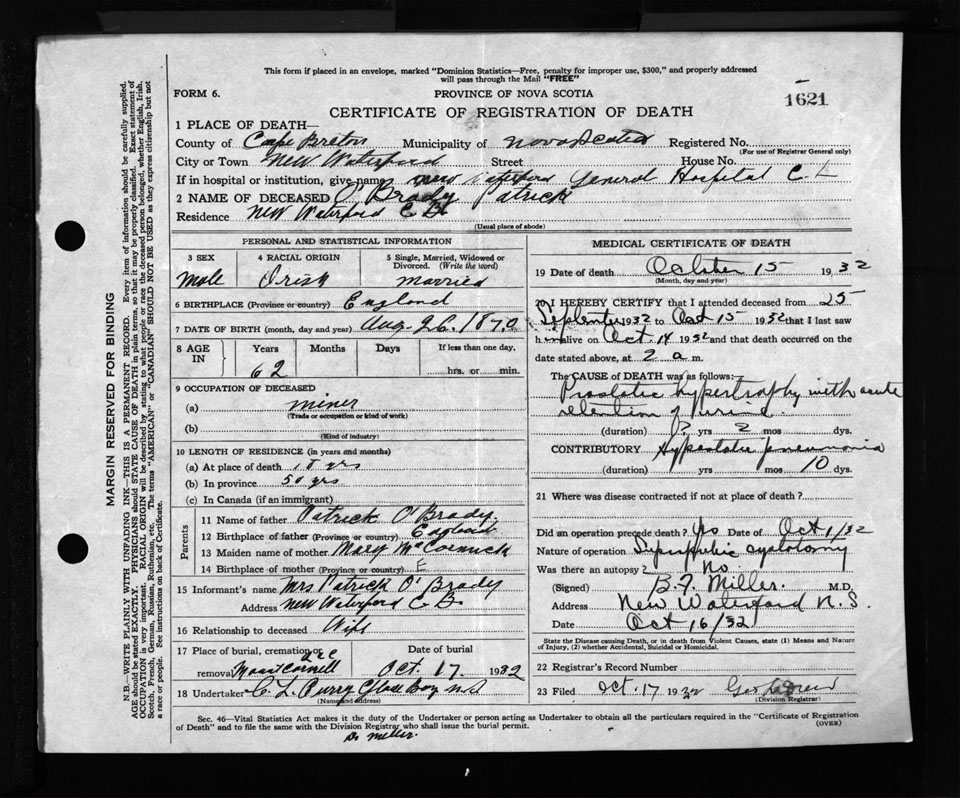 This form if placed in an envelope, marked "Dominion Statistics—Free, penalty for improper use, $300," and properly addressed
will pass through the Mail "FREE"
FORM 6.
PROVINCE OF NOVA SCOTIA
1621
CERTIFICATE OF REGISTRATION OF DEATH
1 PLACE OF DEATH—
County of Cape Breton Municipality of Nova Scotia Registered No.
(For use of Registrar General only)
City or Town New Waterford Street House No.
If in hospital or institution, give name New Waterford General Hospital C.
2 NAME OF DECEASED O'Brady Patrick
Residence New Waterford C B.
(Usual place of abode)
PERSONAL AND STATISTICAL INFORMATION
3 SEX
Male
4 RACIAL ORIGIN
Irish
5 Single, Married, Widowed or
Divorced. (Write the word)
Married
6 BIRTHPLACE (Province or country) England
7 DATE OF BIRTH (month, day and year) Aug. 26. 1870
8 AGE IN Years Months Days If less than one day,
62
hrs. or min.
9 OCCUPATION OF DECEASED
(a) miner
(Trade or occupation or kind of work)
(b)
(Kind of industry)
10 LENGTH OF RESIDENCE (in years and months)
(a) At place of death yrs
(b) In province 50 yrs
(c) In Canada (if an immigrant)
Parents
11 Name of father Patrick O'Brady.
12 Birthplace of father (Province or country) England
13 Maiden name of mother Mary McCormick
14 Birthplace of mother (Province or country) E
15 Informant's name Mrs Patrick O'Brady
Address New Waterford C B.
16 Relationship to deceased Wife
17 Place of burial, cremation or
removal Mount Carmell
Date of burial
Oct. 17 1932
18 Undertaker C. L. Curry Glace Bay N S
(Name and address)
MEDICAL CERTIFICATE OF DEATH
19 Date of death October 15 1932
(Month, day and year)
20 I HEREBY CERTIFY that I attended deceased from 25
September 1932 to Oct 15 1932 that I last saw
him alive on Oct. 14 1932 and that death occurred on the
date stated above, at 2 a m.
The CAUSE of DEATH was as follows:
Prostatic hypertrophy with acute
retention of urine.
(duration) ? yrs 2 mos dys.
CONTRIBUTORY Hypostatic pneumonia
(duration) yrs mos 10 dys.
21 Where was disease contracted if not at place of death?
Did an operation precede death? Yes Date of Oct 1/32
Nature of operation Suprapubic cystotomy
Was there an autopsy? No
(Signed) B. F. Miller. M.D.
Address New Waterford N.S.
Date Oct 16/32
State the Disease causing Death, or in death from Violent Causes, state (1) Means and Nature
of Injury, (2) whether Accidental, Suicidal or Homicidal.
22 Registrar's Record Number
23 Filed Oct. 17 1932
(Division Registrar)
Sec. 46—Vital Statistics Act makes it the duty of the Undertaker or person acting as Undertaker to obtain all the particulars required in the "Certificate of Registration
of Death" and to file the same with the Division Registrar who shall issue the burial permit.
(OVER)
Dr Miller.
MARGIN RESERVED FOR BINDING
N.B.—WRITE PLAINLY WITH UNFADING INK—THIS IS A PERMANENT RECORD. Every item of information should be carefully supplied.
AGE should be stated EXACTLY. PHYSICIANS should STATE CAUSE OF DEATH in plain terms, so that it may be properly classified. Exact statement of
OCCUPATION is very important. RACIAL ORIGIN will be described by stating to what people or race the deceased person belonged, whether English, Irish,
Scotch, French, German, Russian, Ruthenian, etc. The terms "AMERICAN" or "CANADIAN" SHOULD NOT BE USED as they express citizenship but not
a race or people. See instructions on back of Certificate.